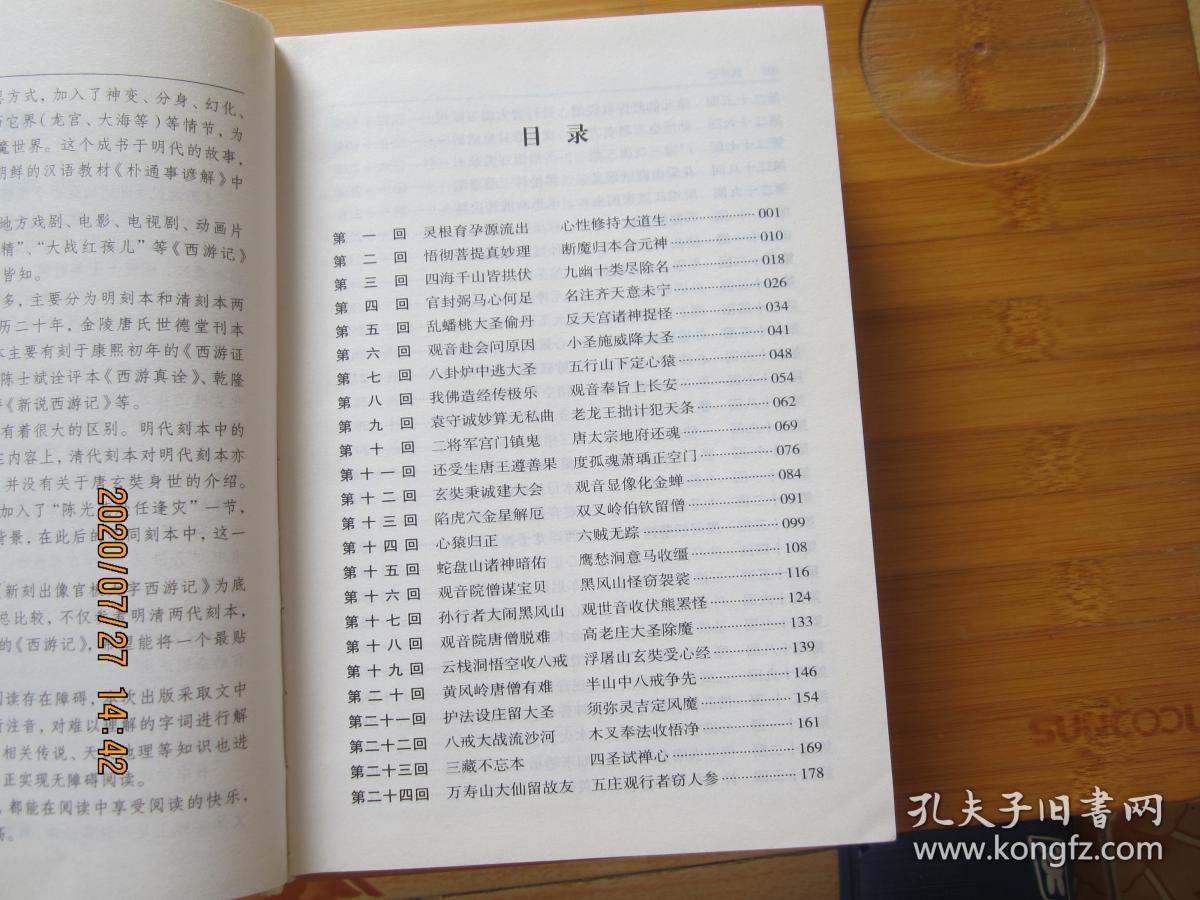 方式，加入了神变、分身、幻化、
它界（龙宫、大海等）等情节，为
魔世界。这个成书于明代的故事，
朝鲜的汉语教材《朴通事谚解》中
地方戏剧、电影、电视剧、动画片
精”、“大战红孩儿”等《西游记》
皆知。
多，主要分为明刻本和清刻本两
历二十年，金陵唐氏世德堂刊本
本主要有刻于康熙初年的《西游证
陈士斌诠评本《西游真诠》、乾隆
《新说西游记》等。
有着很大的区别。明代刻本中的
在内容上，清代刻本对明代刻本亦
并没有关于唐玄奘身世的介绍。
加入了“陈光 任逢灾”一节，
背景，在此后的 同刻本中，这一
《新刻出像官板 字西游记》为底
总比较，不仅参考明清两代刻本，
的《西游记》，希望能将一个最贴
阅读存在障碍，本次出版采取文中
注音，对难以理解的字词进行解
相关传说、天 地理等知识也进
正实现无障碍阅读。
都能在阅读中享受阅读的快乐，
高。
目 录
第一回 灵根育孕源流出 心性修持大道生 001
第二回 悟彻菩提真妙理 断魔归本合元神 010
第三回 四海千山皆拱伏 九幽十类尽除名 018
第四回 官封弼马心何足 名注齐天意未宁 026
第五回 乱蟠桃大圣偷丹 反天宫诸神捉怪 034
第六回 观音赴会问原因 小圣施威降大圣 041
第七回 八卦炉中逃大圣 五行山下定心猿 048
第八回 我佛造经传极乐 观音奉旨上长安 054
第九回 袁守诚妙算无私曲 老龙王拙计犯天条 062
第十回 二将军宫门镇鬼 唐太宗地府还魂 069
第十一回 还受生唐王遵善果 度孤魂萧瑀正空门 076
第十二回 玄奘秉诚建大会 观音显像化金蝉 084
第十三回 陷虎穴金星解厄 双叉岭伯钦留僧 091
第十四回 心猿归正 六贼无踪 099
第十五回 蛇盘山诸神暗佑 鹰愁涧意马收缰 108
第十六回 观音院僧谋宝贝 黑风山怪窃袈裟 116
第十七回 孙行者大闹黑风山 观世音收伏熊罴怪 124
第十八回 观音院唐僧脱难 高老庄大圣除魔 133
第十九回 云栈洞悟空收八戒 浮屠山玄奘受心经 139
第二十回 黄风岭唐僧有难 半山中八戒争先 146
第二十一回 护法设庄留大圣 须弥灵吉定风魔 154
第二十二回 八戒大战流沙河 木叉奉法收悟净 161
第二十三回 三藏不忘本 四圣试禅心 169
第二十四回 万寿山大仙留故友 五庄观行者窃人参 178
2020/07/27 14:42
孔夫子旧书网
www.kongfz.com